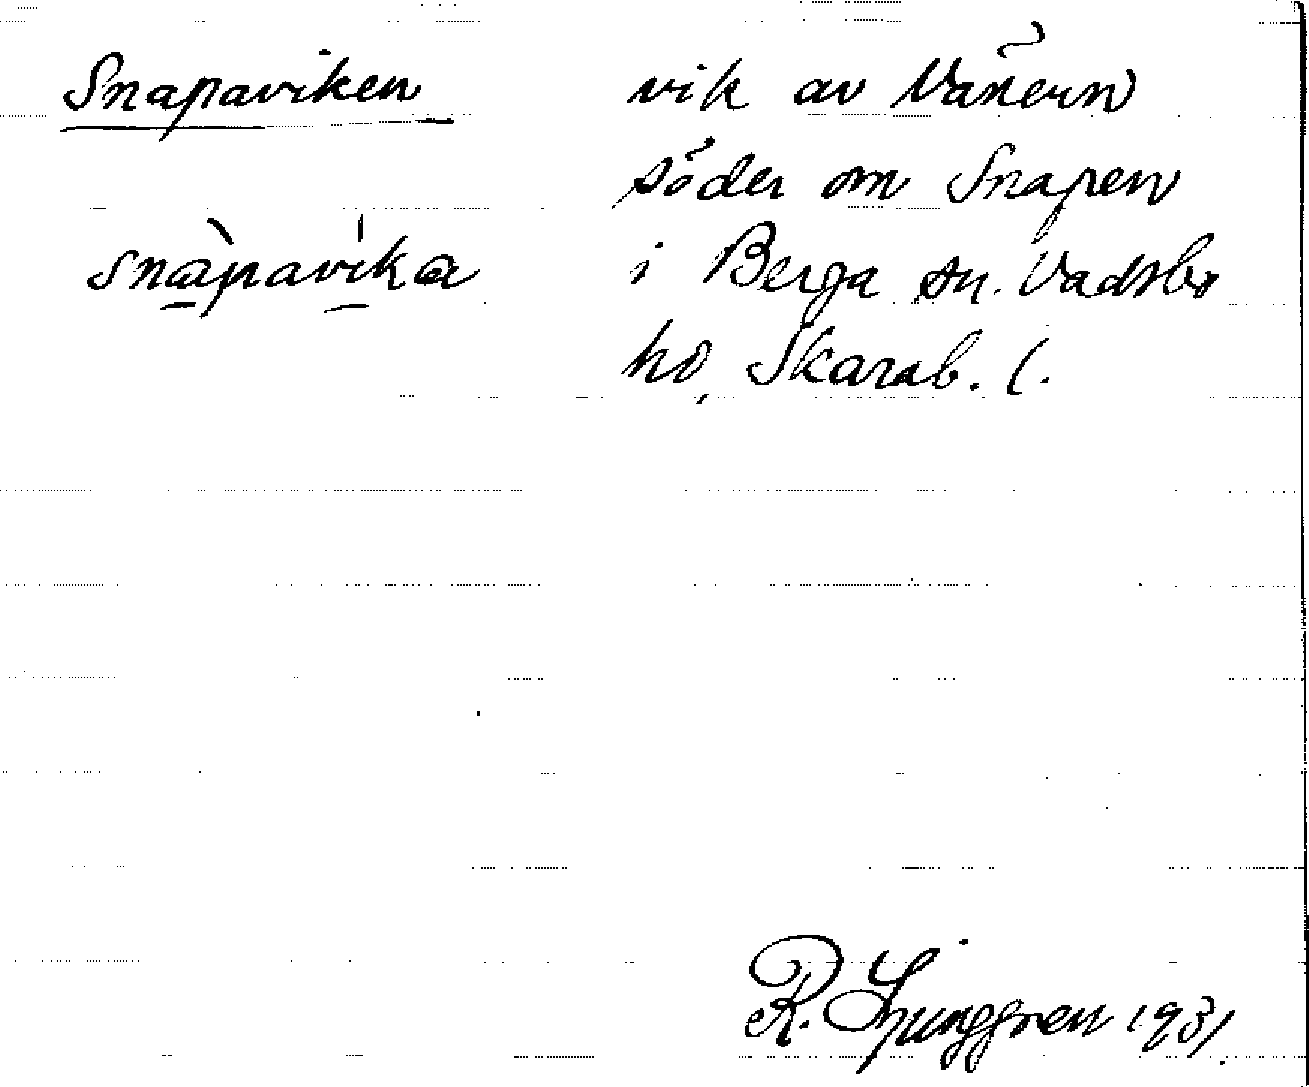 Snapaviken
snàpavi̍ka
vik av Vänern
söder om Snapen
i Berga sn. Vadsbo
hd, Skarab. l.
R. Ljunggren 1931.